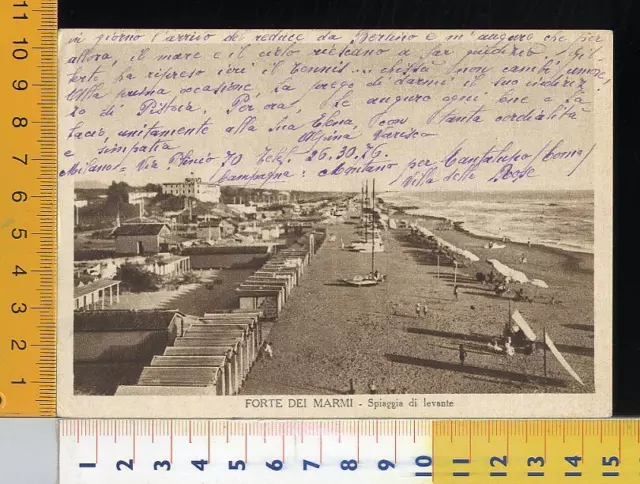 vi giorno l'arrivo del reduce da Berlino e m'auguro che per
allora, il mare e il cielo riescano a far giudizio.
ha ripreso ieri il tennis... chissà non cambi umore!
Alla prima occasione, La prego di darmi il suo indiriz-
zo di Pistoia. Per ora, Le auguro ogni bene e La
bacio, unitamente alla Sua Elena, con tanta cordialità
e simpatia
Milano - Via Plinio 70 Telef. 26.30.76
Campagna: per Cantalupo (Como)
Villa delle Rose
FORTE DEI MARMI - Spiaggia di levante
11
10
9
8
7
6
5
4
3
2
1
1 2 3 4 5 6 7 8 9 10 11 12 13 14 15